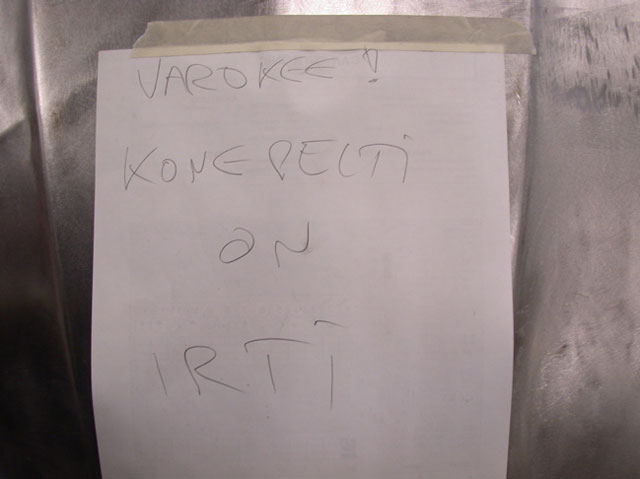 VAROKEE!
KONEPELTI
ON
IRTI